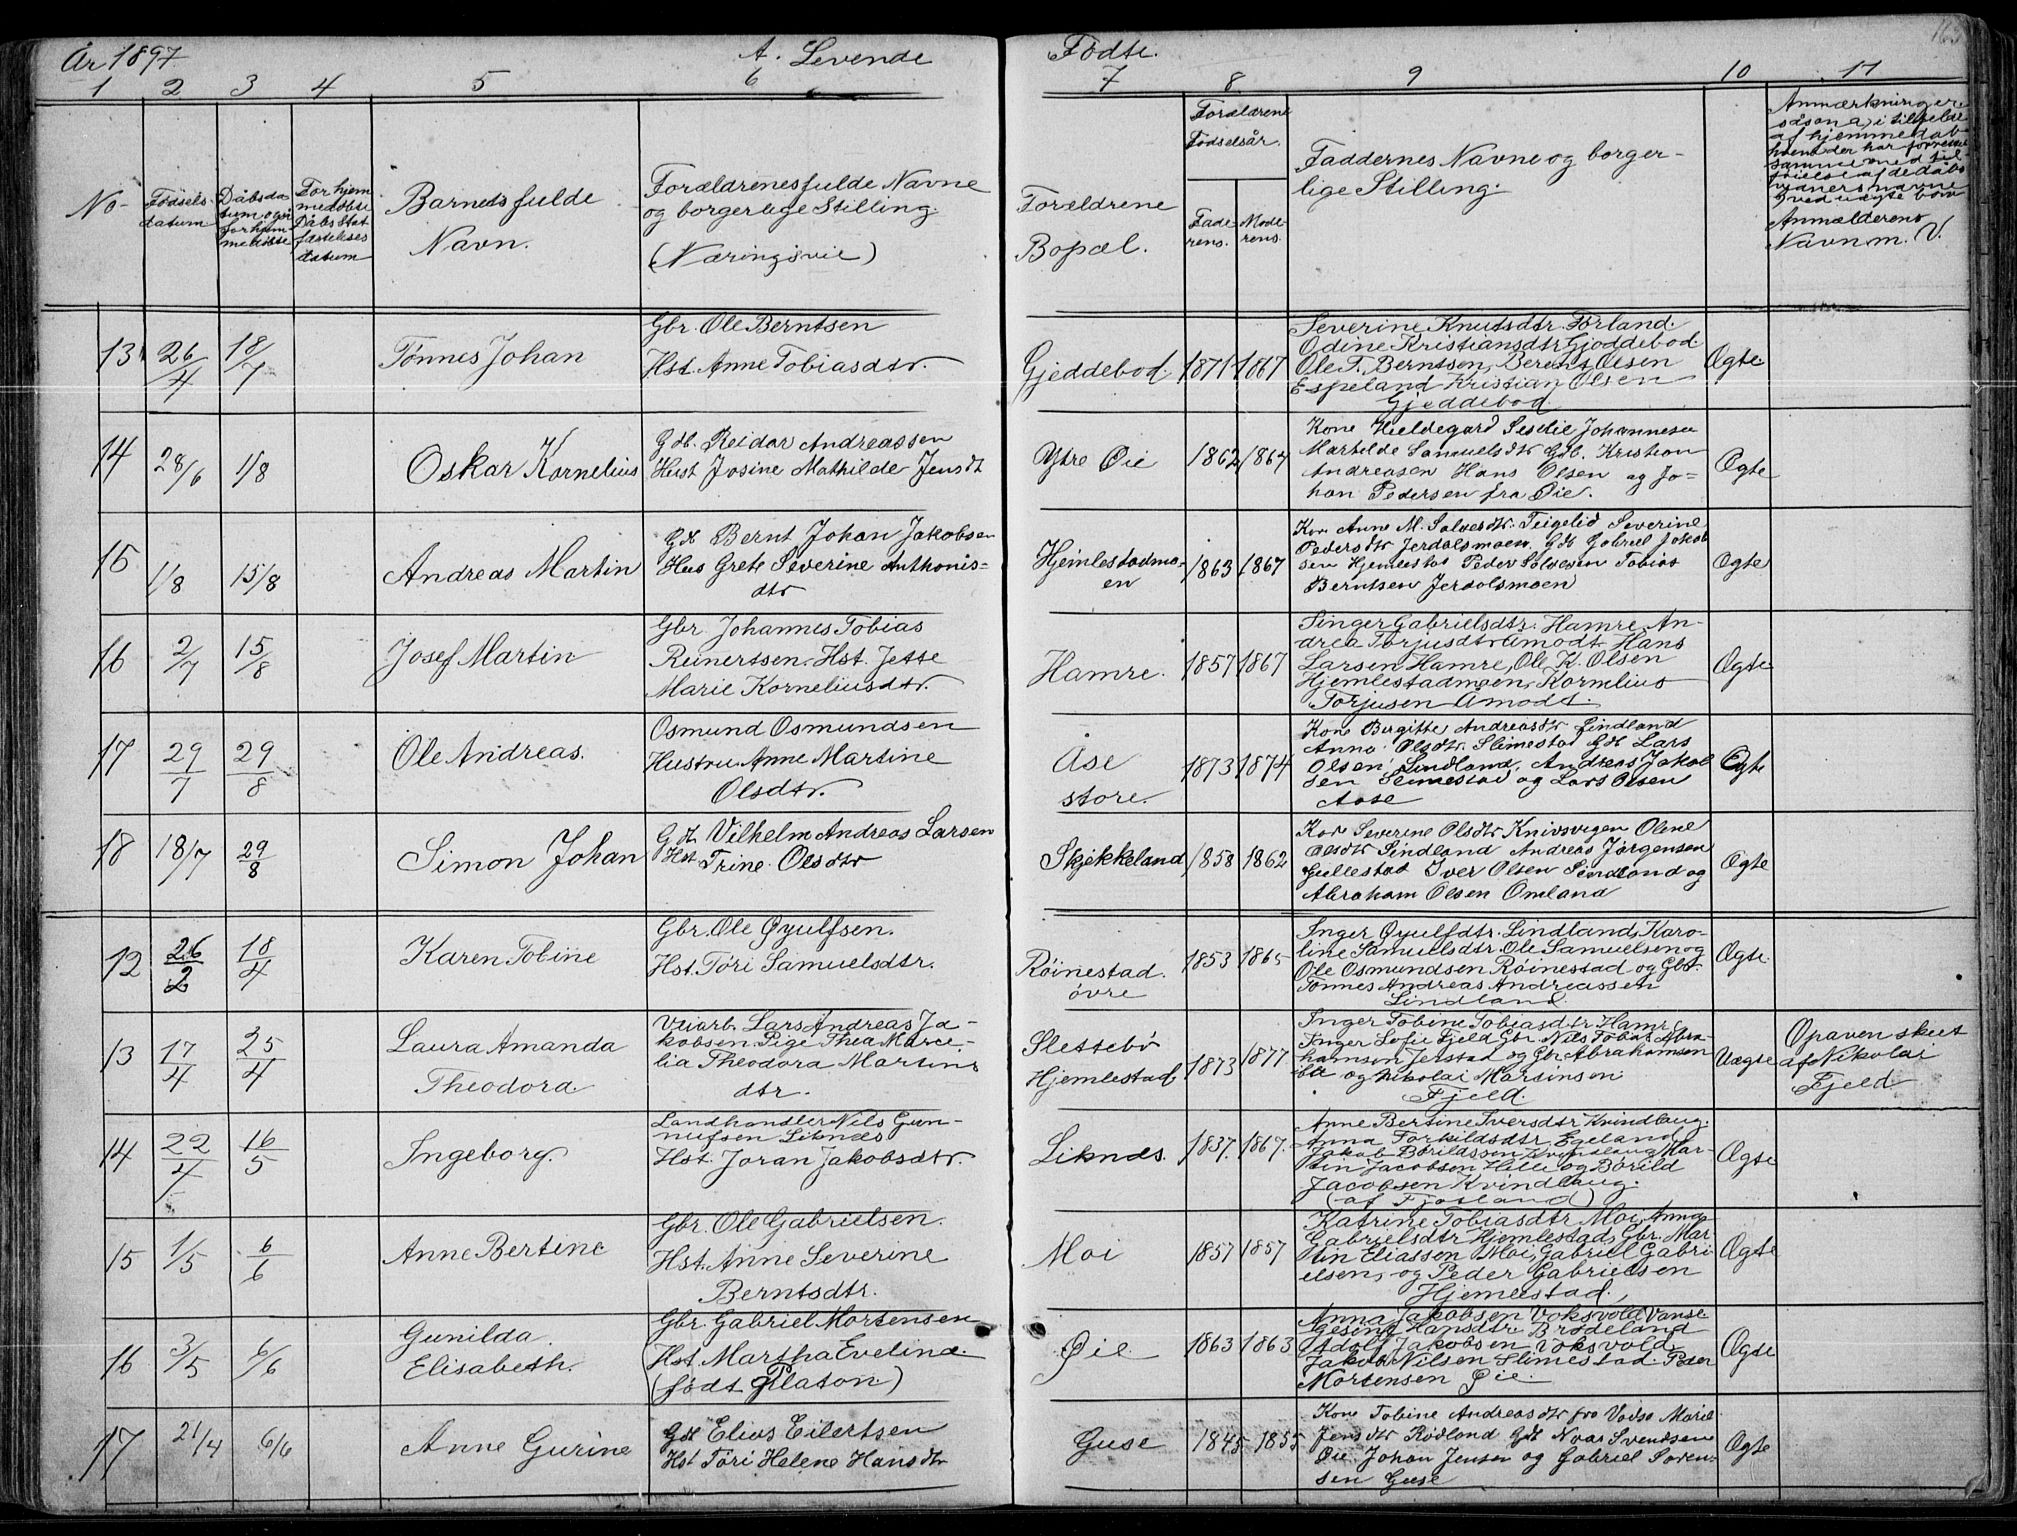 År 1897
A. Levende
Fødte.
163
1 2 3 4 5 6 7 8 9 10 11
No-
Fødsels
datum
Dåbsda
tum
For hjem
medøbte
Dåbs Stad
fæstelses
datum
Barnets fulde
Navn.
Forældrenes fulde Navne
og borgerlige Stilling.
(Næringsvei)
Forældrene
Bopæl.
Forældrene
Fødselsår.
Fade-
rens.
Mode-
rens.
Faddernes Navne og borger-
lige Stilling.
Anmærkninger
såsom a) i tilfælde
af hjemmedåb
hvem der har forrettet
samme
Anmælderens
Navn m. V.
13 26/4 18/7 Tønnes Johan
Gbr. Ole Berntsen
Hst. Anne Tobiasdtr.
Gjeddebod. 1871 1867
Severine Knutsdtr. Førland.
Odine Kristiansdtr Gjøddebod.
Ole T. Berntsen, Berent Olsen
Espeland Kristian Olsen
Gjeddebod
Ægte
14 28/6 1/8 Oskar Kornelius
Gdb. Reidar Andreassen
Hust Josine Mathilde Jensdt
Ytre Øie 1862 1864
Kone Hildegard Johannesen
Martilde Samuelsdtr Gdb. Kristian
Andreasen Hans Olsen og Jo-
han Pedersen fra Øie.
Ægte
15 1/8 15/8 Andreas Martin
Gdb Bernt Johan Jakobsen
Hus Grete Severine Anthonis-
dtr
Hjemlestadmo-
en 1863 1867
Kon Anne M. Salvesdtr. Teigelid Severine
Pedersdtr Jerdalsmoen Gdb Gabriel Jakob
sen Hjemlestad Peder Salvesen Tobias
Berntsen Jerdalsmoen
Ægte
16 2/7 15/8 Josef Martin
Gbr Johannes Tobias
Reinertsen. Hst. Jette
Marie Korneliusdtr.
Hamre. 1857 1867
Singer Gabrielsdtr. Hamre An-
drea Torjusdtr Åmodt Hans
Larsen Hamre, Ole K. Olsen
Hjemlestadmoen, Kornelius
Torjusen Åmodt.
Ægte
17 29/7 29/8 Ole Andreas.
Osmund Osmundsen
Hustru Anne Martine
Olsdtr.
Åse
store. 1873 1874
Kone Bergitte Andreasdtr Lindland
Anna Olsdtr. Slimestad Gdb Lars
Olsen Lindland, Andreas Jakob
sen Slimestad og Lars Olsen
Aase
Ægte
18 18/7 29/8 Simon Johan
Gdb Vilhelm Andreas Larsen
Hst. Trine Olsdtr
Skjekkeland 1858 1862
Kon Severine Olsdtr Knivsvigen Olene
Olsdtr Lindland Andreas Jørgensen
Gullestad Iver Olsen Lindland og
Abraham Olsen Omland
Ægte
12 26/2 18/4 Karen Tobine
Gbr. Ole Øyulfsen.
Hst. Tøri Samuelsdtr.
Röinestad.
øvre 1853 1865
Inger Øyulfdtr. Lindland, Karo-
line Samuelsdtr. Ole Samuelsen og
Ole Osmundsen Röinestad og Gbr.
Tønnes Andreas Andreassen
Lindland.
Ægte.
13 17/4 25/4 Laura Amanda
Theodora.
Veiarb. Lars Andreas Ja-
kobsen. Pige Thea Marce-
lia Theodora Martins
dtr.
Slettebø
Hjemlestad 1873 1877
Inger Tobine Tobiasdtr Hamre
Inger Sofie Fjeld Gbr. Nils Tobias Abra-
hamson Jerstad og Gbr. Abrahamsen
ibd og Nikolai Martinsen
Fjeld.
Uægte
Opgaven skeet
af Nikolai
Fjeld.
14 22/4 16/5 Ingeborg.
Landhandler Nils Gun-
nufsen Liknes
Hst. Joran Jakobsdtr.
Liknes. 1837. 1867.
Anne Bertine Iversdtr Kvindlaug.
Anna Torkildsdtr. Egeland
Jakob Børildssen Kvindlaug Mar-
tin Jacobsen Hille og Børild
Jacobsen Kvindlaug.
(af Fjotland)
Ægte
15 1/5 6/6 Anne Bertine
Gbr. Ole Gabrielsen.
Hst. Anne Severine
Berntsdtr.
Moi 1857 1857
Katrine Tobiasdtr Moi, Anna
Gabrielsdtr Hjemlestad, Gbr. Mar
tin Eliassen Moi, Gabriel Gabri
elsen, og Peder Gabrielsen
Hjemlestad.
Ægte
16 3/5 6/6 Gunilda.
Elisabeth.
Gbr. Gabriel Mortensen
Hst. Martha Eveline
(født Platon.)
Øie 1863 1863
Anna Jakobsen Voksvold Vanse
Gesine Hansdtr Brødeland
Adolf Jakobsen Voksvold.
Jakob Nilsen Slimestad. Peder
Mortensen Øie.
Ægte
17 21/4 6/6 Anne Gurine
Gdb Elias Eilertsen
Hst Tøri Helene Hansdtr
Guse 1845 1855
Kone Tobine Andreasdtr fra Vodso Marie
Jensdtr Rödland Gdb Svendsen
Øie Johan Jensen og Gabriel Søren-
sen Guse
Ægte